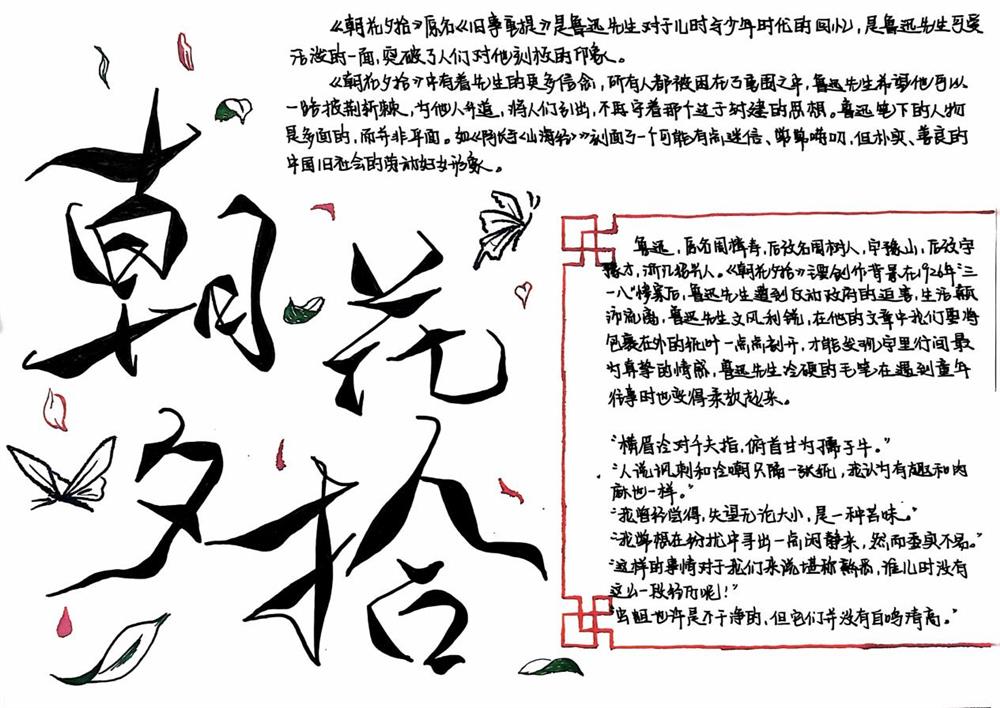 《朝花夕拾》原名《旧事重提》是鲁迅先生对于儿时与少年时代的回忆，是鲁迅先生可爱
活泼的一面，突破了人们对他刻板的印象。
《朝花夕拾》中有着先生的更多信念，所有人都被困在了高围之中，鲁迅先生希望他可以
一路披荆斩棘，为他人开道，将人们引出，不再守着那个过于封建的思想。鲁迅笔下的人物
是多面的，而并非平面。如《阿长与山海经》刻画了一个可能有点迷信、唠唠叨叨，但朴实、善良的
中国旧社会的劳动妇女形象。
朝花
夕拾
鲁迅，原名周樟寿，后改名周树人，字豫山，后改字
豫才，浙江绍兴人。《朝花夕拾》主要创作背景在1926年"三
一八"惨案后，鲁迅先生遭到反动政府的迫害，生活颠
沛流离，鲁迅先生文风利锐，在他的文章中我们要将
包裹在外的枇叶一点点剖开，才能发现字里行间最
为真挚的情感，鲁迅先生冷硬的毛笔在遇到童年
往事时也变得柔软起来。
"横眉冷对千夫指，俯首甘为孺子牛。"
"人说讽刺和冷嘲只隔一张纸，我认为有趣和肉
麻也一样。"
"我曾经尝得，失望无论大小，是一种苦味。"
"我常想在纷扰中寻出一点闲静来，然而委实不易。"
"这样的事情对于我们来说堪称熟悉，谁儿时没有
这么一段经历呢！"
"虫蛆也许是不干净的，但它们并没有自鸣清高。"